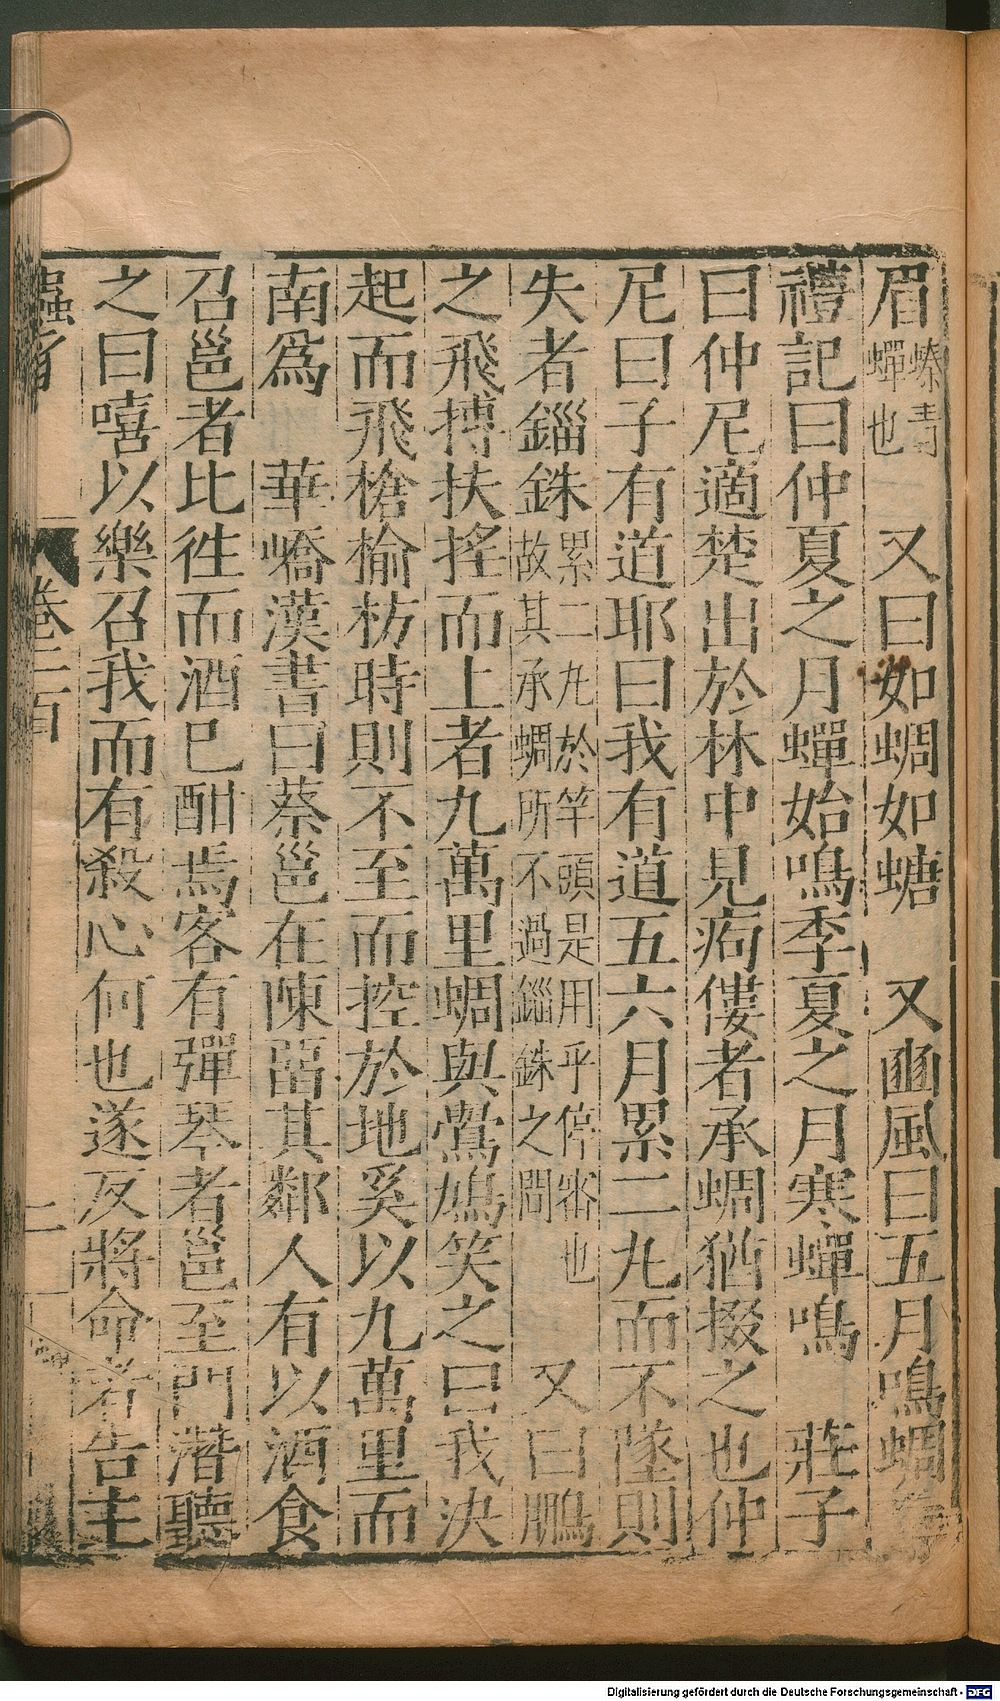 眉螓青蟬也　又曰如蜩如螗　又豳風曰五月鳴蜩
禮記曰仲夏之月蟬始鳴季夏之月寒蟬鳴　莊子
曰仲尼適楚出於林中見痀僂者承蜩猶掇之也仲
尼曰子有道耶曰我有道五六月累二九而不墜則
失者錙銖累二九於竿頭是用乎停審也故其承蜩所不過錙銖之間　又曰鵬
之飛摶扶搖而上者九萬里蜩與鷽鳩笑之曰我決
起而飛槍榆枋時則不至而控於地奚以九萬里而
南爲　華嶠漢書曰蔡邕在陳留其鄰人有以酒食
召邕者比徃而酒巳酣焉客有彈琴者邕至門潛聽
之曰嘻以樂召我而有殺心何也遂反將命者告主
卷三百
二
Digitalisierung gefördert durch die Deutsche Forschungsgemeinschaft - DFG